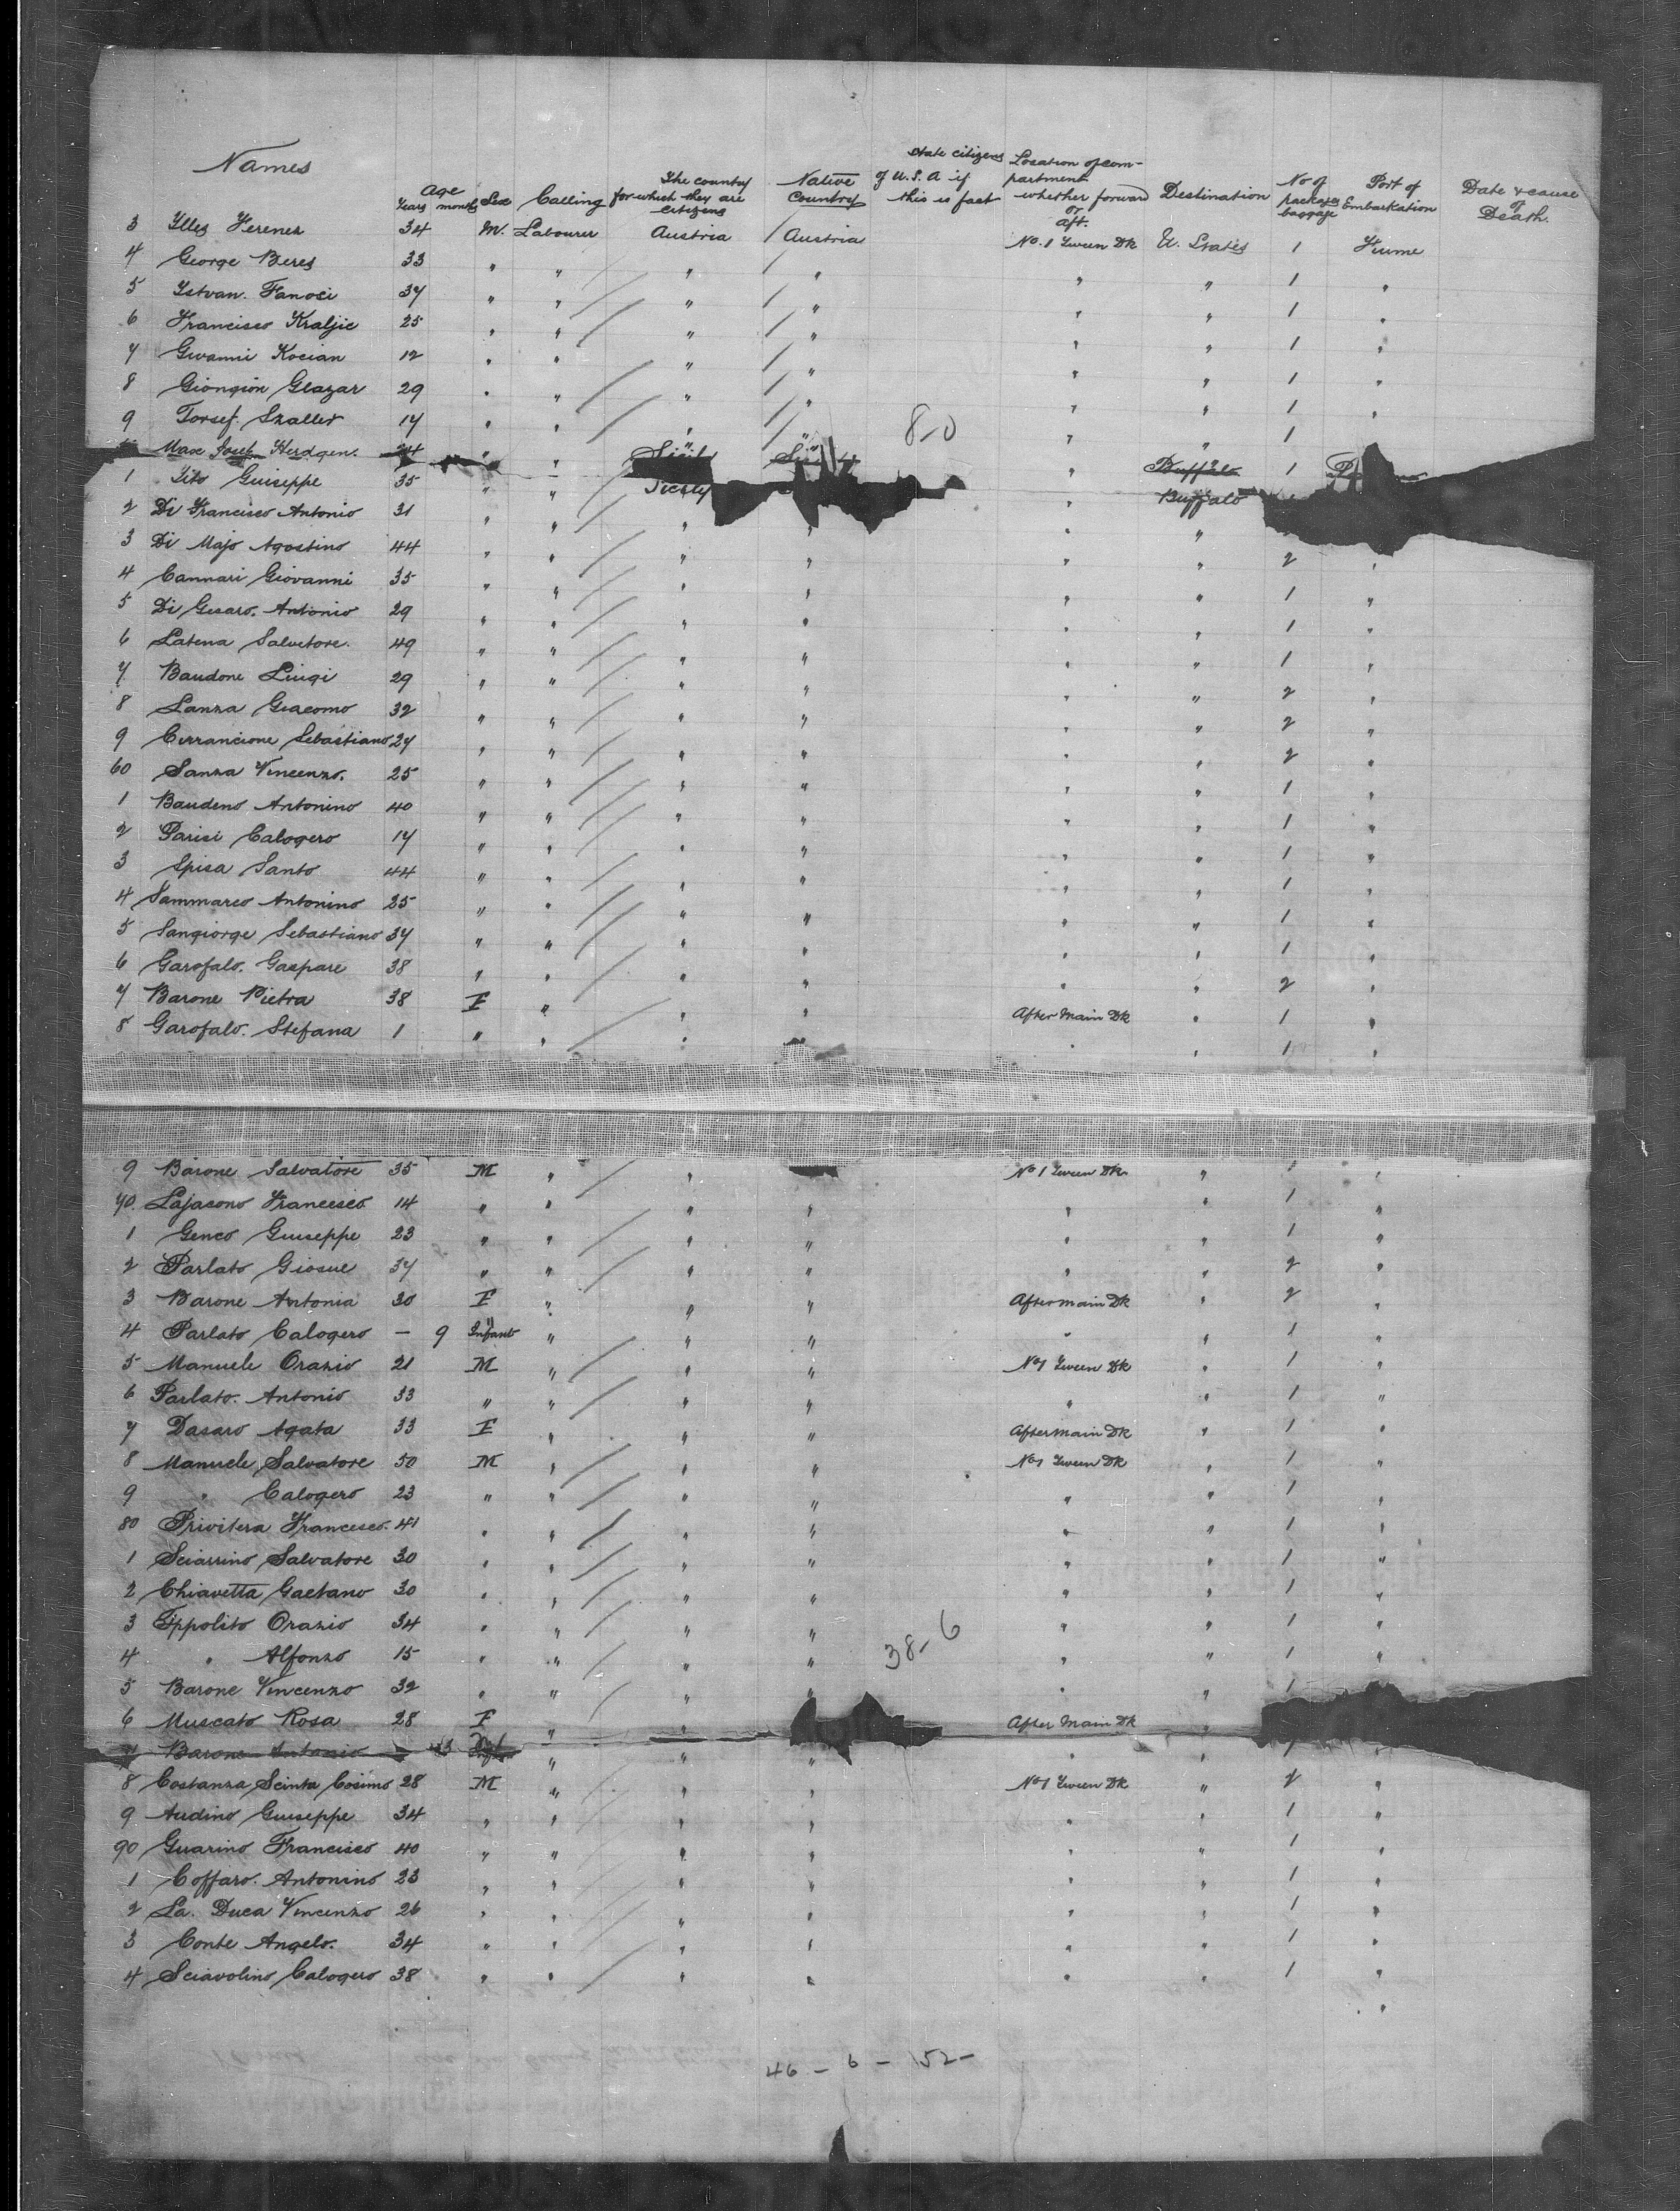 Names Age Years months Sex Calling The country for which they are citizens Native Country State citizens of U.S.A if this is fact Location of compartment whether forward or aft. Destination No of packages baggage Port of Embarkation Date & cause of Death.
3 Illes Ferenez 34 M. Labourer Austria / Austria No. 1 Tween Dk U. States 1 Fiume
4 George Beres 33 " " " / " " " 1 "
5 Istvan. Fanoci 37 " " " / " " " 1 "
6 Francisco Kraljic 25 " " " / " " " 1 "
7 Giovanni Kocian 12 " " " / " " " 1 "
8 Giongion Glazar 29 " " " / " " " 1 "
9 Torsef. Szaller 17 " " " / " 8-0 " " 1
Max Josef Herdgen. 24 " " Sicily " Buffalo 1
1 Tito Giuseppe 35 " " Sicily " Buffalo
2 Di Francisco Antonio 31 " " " " " "
3 Di Majo Agostino 44 " " " " " " 2 "
4 Cannari Giovanni 35 " " " " " " 1 "
5 Di Gesaro. Antonio 29 " " " " " " 1 "
6 Latena Salvetore. 49 " " " " " " 1 "
7 Baudone Luigi 29 " " " " " " 2 "
8 Lanza Giacomo 32 " " " " " " 2 "
9 Cirrancione Sebastiano 27 " " " " " " 2 "
60 Sanza Vincenzo. 25 " " " " " " 1 "
1 Baudeno Antonino 40 " " " " " " 1 "
2 Parisi Calogero 17 " " " " " " 1 "
3 Spisa Santo 44 " " " " " " 1 "
4 Sammarco Antonino 25 " " " " " " 1 "
5 Sangiorge Sebastiano 37 " " " " " " 1 "
6 Garofalo. Gaspare 38 " " " " " " 2 "
7 Barone Pietra 38 F " " " After Main Dk " 1 "
8 Garofalo. Stefana 1 " " " " " " 1 "
9 Barone Salvatore 35 M " " No 1 Tween Dk " 1 "
70. Lajacono Francesco 14 " " " " " " 1 "
1 Genco Giuseppe 23 " " " " " " 1 "
2 Parlato Giosue 37 " " " " " " 2 "
3 Barone Antonia 30 F " " " After main Dk " 2 "
4 Parlato Calogero — 9 Infant " " " " " 1 "
5 Manuele Orazio 21 M " " " No 1 Tween Dk " 1 "
6 Parlato. Antonio 33 " " " " " " 1 "
7 Dasaro Agata 33 F " " " After main Dk " 1 "
8 Manuele Salvatore 50 M " " " No 1 Tween Dk " 1 "
9 " Calogero 23 " " " " " " 1 "
80 Privitera Francesco. 41 " " " " " " 1 "
1 Sciarrino Salvatore 30 " " " " " " 1 "
2 Chiavetta Gaetano 30 " " " " " " 1 "
3 Ippolito Orazio 34 " " " " " " 1 "
4 " Alfonzo 15 " " " " 38-6 " " 1 "
5 Barone Vincenzo 32 " " " " " " 1
6 Muscato Rosa 28 F " " After Main Dk "
Barone Antonio " " " " " 1 "
8 Costanza Scinta Cosimo 28 M " " " No 1 Tween Dk " 2 "
9 Audino Giuseppe 34 " " " " " " 1 "
90 Guarino Francisco 40 " " " " " " 1 "
1 Coffaro. Antonino 23 " " " " " " 1 "
2 La. Duca Vincenzo 26 " " " " " " 1 "
3 Conte Angelo. 34 " " " " " " 1 "
4 Sciavolino Calogero 38 " " " " " " 1 "
46 - 6 - 152 -